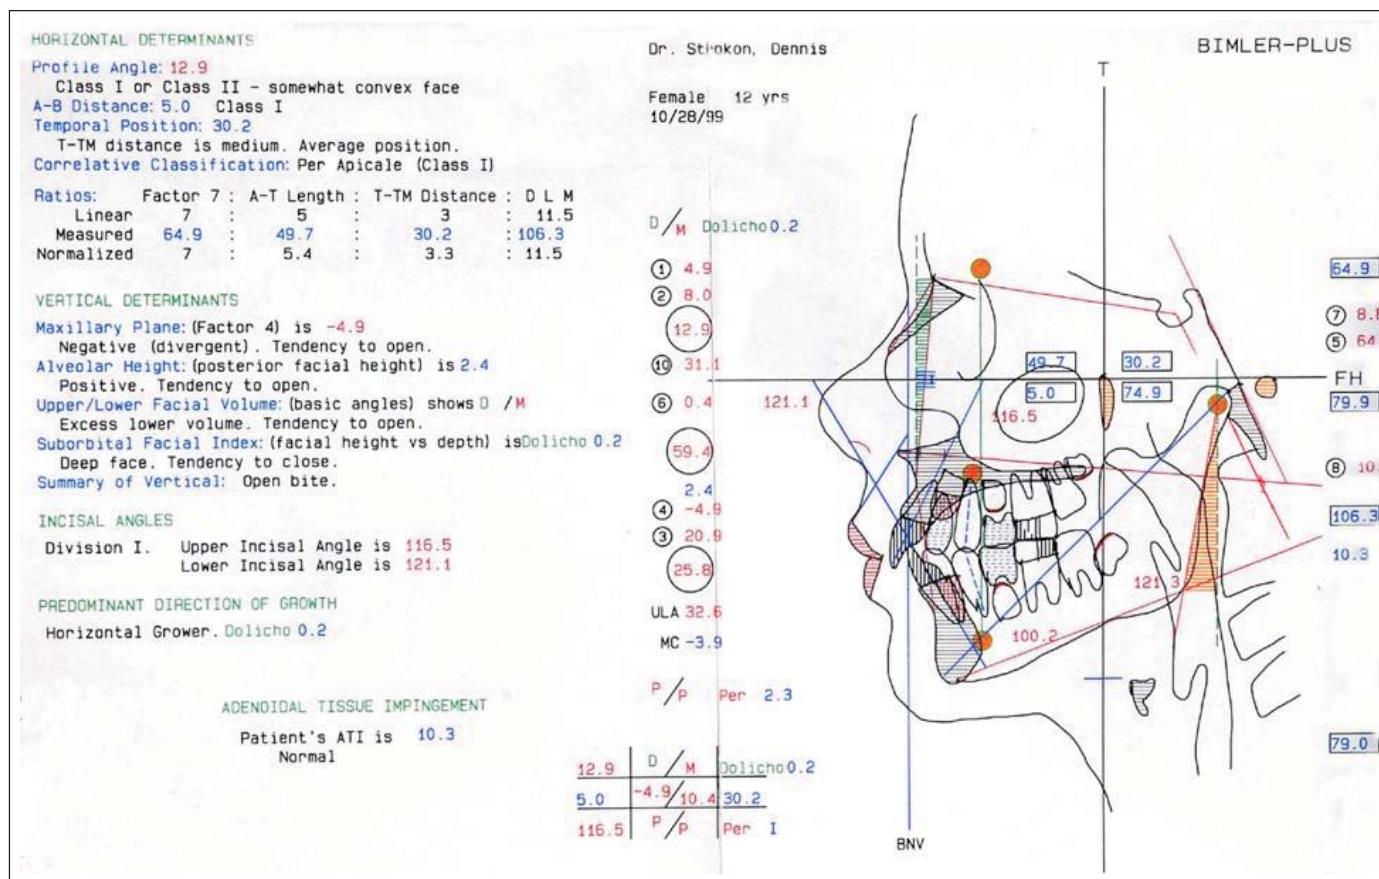 HORIZONTAL DETERMINANTS
Profile Angle: 12.9
Class I or Class II - somewhat convex face
A-B Distance: 5.0 Class I
Temporal Position: 30.2
T-TM distance is medium. Average position.
Correlative Classification: Per Apicale (Class I)
Ratios: Factor 7 : A-T Length : T-TM Distance : D L M
Linear 7 : 5 : 3 : 11.5
Measured 64.9 : 49.7 : 30.2 : 106.3
Normalized 7 : 5.4 : 3.3 : 11.5
VERTICAL DETERMINANTS
Maxillary Plane: (Factor 4) is -4.9
Negative (divergent). Tendency to open.
Alveolar Height: (posterior facial height) is 2.4
Positive. Tendency to open.
Upper/Lower Facial Volume: (basic angles) shows D / M
Excess lower volume. Tendency to open.
Suborbital Facial Index: (facial height vs depth) is Dolicho 0.2
Deep face. Tendency to close.
Summary of Vertical: Open bite.
INCISAL ANGLES
Division I. Upper Incisal Angle is 116.5
Lower Incisal Angle is 121.1
PREDOMINANT DIRECTION OF GROWTH
Horizontal Grower. Dolicho 0.2
ADENOIDAL TISSUE IMPINGEMENT
Patient's ATI is 10.3
Normal
Dr. Stirokon, Dennis
Female 12 yrs
10/28/99
D/M Dolicho 0.2
1 4.9
2 8.0
12.9
10 31.1
6 0.4
59.4
2.4
4 -4.9
3 20.9
25.8
ULA 32.6
MC -3.9
P/P Per 2.3
12.9 D/M Dolicho 0.2
5.0 -4.9/10.4 30.2
116.5 P/P Per I
BIMLER-PLUS
T
I
49.7 30.2
5.0 74.9
121.1
116.5
121.3
100.2
BNV
64.9
7 8.8
5 64
FH
79.9
8 10.
106.3
10.3
79.0